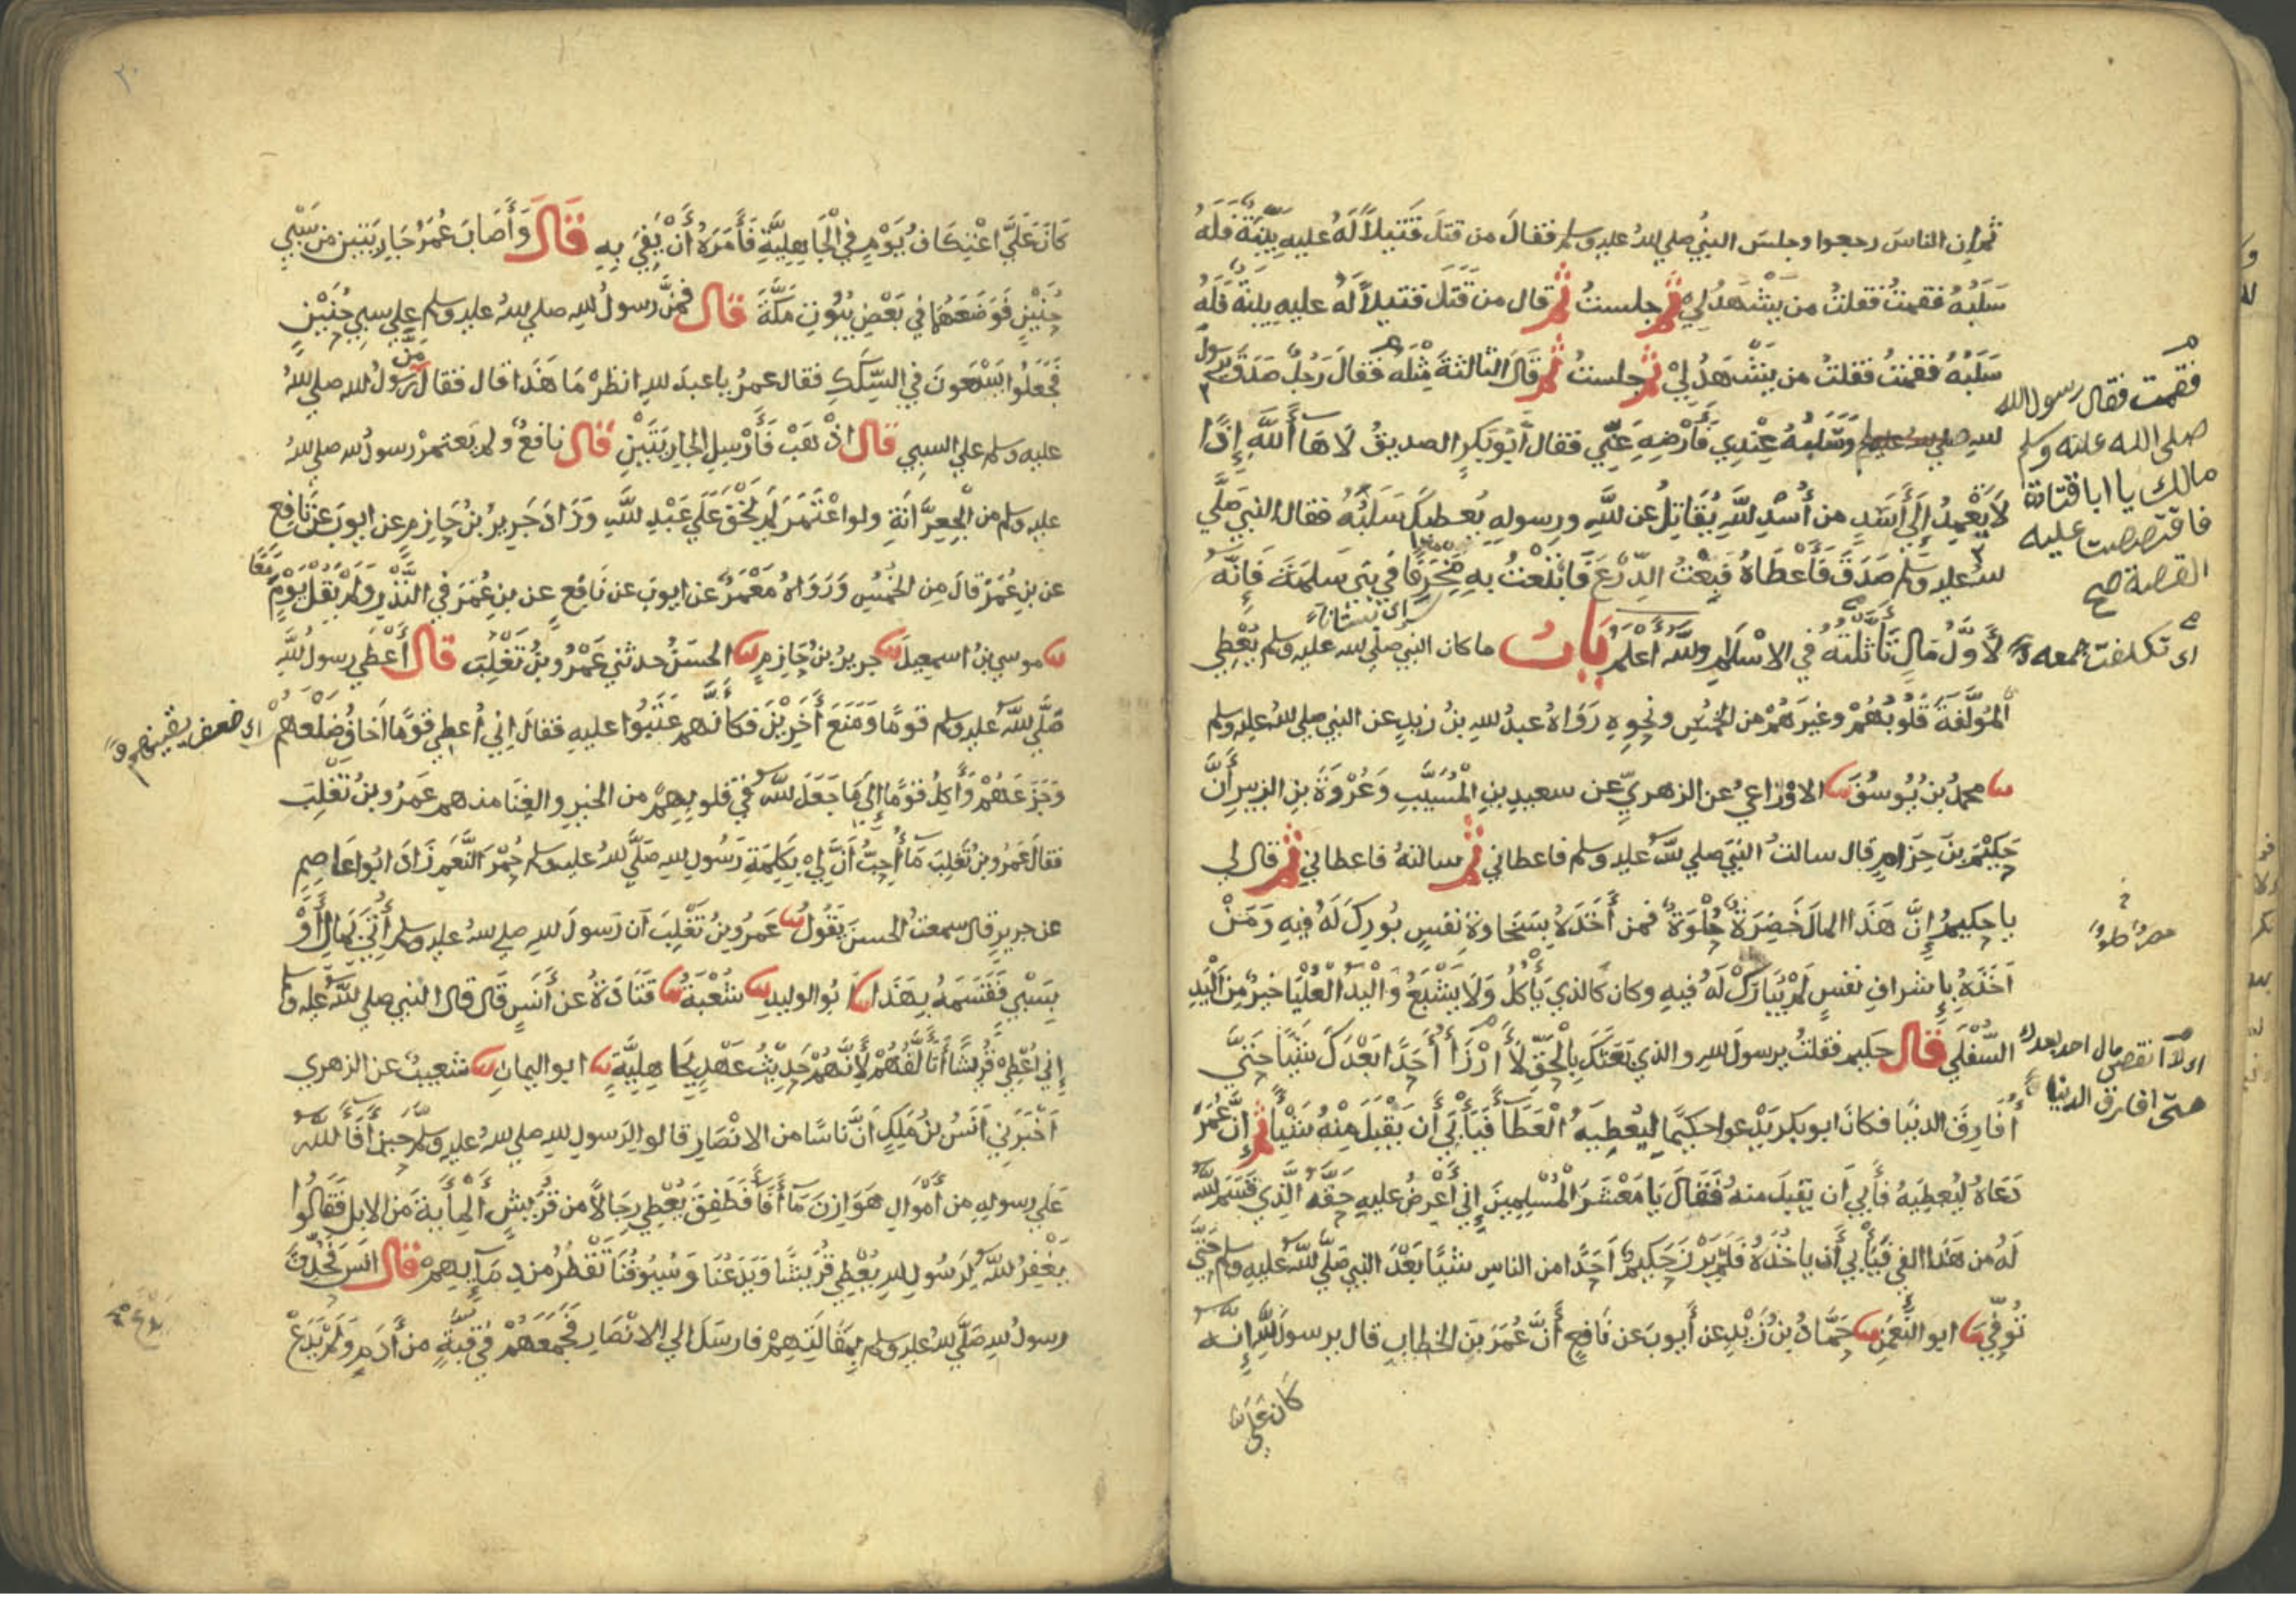 ثم ان الناس رجعوا وجلس النبي صلي الله عليه وسلم فقال من قتل قتيلا له عليه بينة فله
سلبه فقمت فقلت من يشهد لي ثم جلست ثم قال من قتل قتيلا له عليه بينة فله
سلبه فقمت فقلت من يشهد لي ثم جلست ثم قال الثالثة مثله فقال رجل صدق يرسول
فقمت فقال رسول الله
صلى الله عليه وسلم
مالك يا ابا قتادة
فاقتصصت عليه
القصة صح
لله وسلبه عندي فأرضه عني فقال أبو بكر الصديق لاها ألله إذا
لا يعمد إلي أسد من أسد الله يقاتل عن الله ورسوله يعطيك سلبه فقال النبي صلي
لله عليه وسلم صدق فأعطاه فبعت الدرع فابتعت به مخرفا في بني سلمة فإنه
اي بستانا
لأول مال تأثلته في الاسلام والله اعلم باب ما كان النبي صلي الله عليه وسلم يعطي
اي تكلفت جمعه
المؤلفة قلوبهم وغيرهم من الخمس ونحوه رواه عبد الله بن زيد عن النبي صلي الله عليه وسلم
ثنا محمد بن يوسف ثنا الاوزاعي عن الزهري عن سعيد بن المسيب وعروة بن الزبير أن
حكيم بن حزام قال سالت النبي صلي الله عليه وسلم فاعطاني ثم سالته فاعطاني ثم قال لي
يا حكيم إن هذا المال خضرة حلوة فمن أخذه بسخاوة نفس بورك له فيه ومن
أخذه بإشراف نفس لم يبارك له فيه وكان كالذي يأكل ولا يشبع واليد العليا خير من اليد
السفلي قال حكيم فقلت يرسول الله والذي بعثك بالحق لا أرزأ أحدا بعدك شيئا حتي
اي لا انقص مال احد بعدك
حتى افارق الدنيا
أفارق الدنيا فكان ابو بكر يدعوا حكيما ليعطيه العطآ فيأبي أن يقبل منه شيئا ثم إن عمر
دعاه ليعطيه فأبي أن يقبل منه فقال يا معشر المسلمين إني أعرض عليه حقه الذي قسم الله
له من هذا الفي فيأبي أن ياخذه فلم يرزأ حكيم أحدا من الناس شيئا بعد النبي صلي الله عليه وسلم حتي
توفي ثنا ابو النعمن ثنا حماد بن زيد عن أيوب عن نافع أن عمر بن الخطاب قال يرسول الله إنه
كان علي
٢٠
كان علي اعتكاف يوم في الجاهلية فأمره أن يفي به قال وأصاب عمر جاريتين من سبي
حنين فوضعهما في بعض بيوت مكة قال فمن رسول الله صلي الله عليه وسلم علي سبي حنين
فجعلوا يسعون في السكك فقال عمر يا عبد الله انظر ما هذا قال فقال من رسول الله صلي الله
عليه وسلم علي السبي قال اذهب فأرسل الجاريتين قال نافع ولم يعتمر رسول الله صلي الله
عليه وسلم من الجعرانة ولو اعتمر لم يخف علي عبد الله وزاد جرير بن حازم عن ايوب عن نافع
عن بن عمر قال من الخمس ورواه معمر عن ايوب عن نافع عن بن عمر في النذر ولم يقل يوم
ثنا موسي بن اسمعيل ثنا جرير بن حازم ثنا الحسن حدثني عمرو بن تغلب قال أعطي رسول الله
صلي الله عليه وسلم قوما ومنع أخرين فكأنهم عتبوا عليه فقال إني أعطي قوما أخاف ضلعهم
اي ضعف يقينهم
وجزعهم وأكل قوما إلي ما جعل الله في قلوبهم من الخير والغنا منهم عمرو بن تغلب
فقال عمرو بن تغلب ما أحب أن لي بكلمة رسول الله صلي الله عليه وسلم حمر النعم زاد ابوا عاصم
عن جرير قال سمعت الحسن يقول ثنا عمرو بن تغلب ان رسول الله صلي الله عليه وسلم أتي بمال أو
بسبي فقسمه بهذا ثنا ابو الوليد ثنا شعبة ثنا قتادة عن أنس قال قال النبي صلي الله عليه وسلم
إني أعطي قريشا أتألفهم لأنهم حديث عهد بجاهلية ثنا ابو اليمان ثنا شعيب عن الزهري
أخبرني أنس بن ملك أن ناسا من الانصار قالوا لرسول الله صلي الله عليه وسلم حين أفآ الله
علي رسوله من أموال هوازن مآ أفآ فطفق يعطي رجالا من قريش المأية من الابل فقالوا
يغفر الله لرسول الله يعطي قريشا ويدعنا وسيوفنا تقطر من دمآيهم قال انس فحدث
رسول الله صلي الله عليه وسلم بمقالتهم فارسل الي الانصار فجمعهم في قبة من أدم ولم يدع